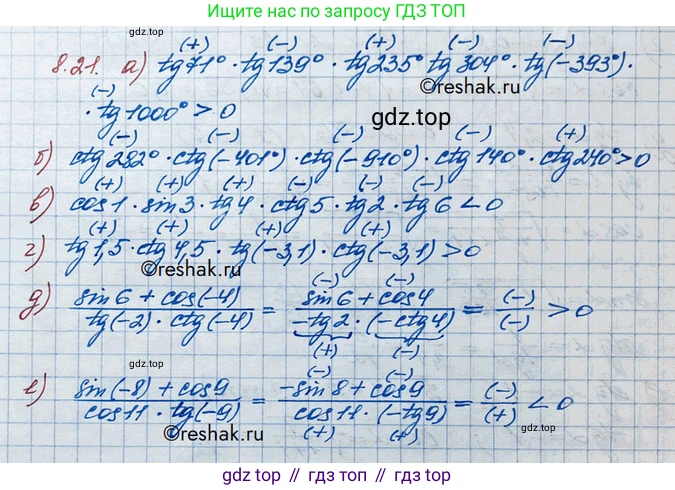 Ищите нас по запросу ГДЗ ТОП
(+) (-) (+) (-) (-)
8.21. а) tg71° · tg139° · tg235° tg304° · tg(-393°) ·
(-)
· tg1000° > 0
©reshak.ru
gdz.top
(-) (-) (-) (-) (+)
б) ctg282° · ctg(-401°) · ctg(-910°) · ctg140° · ctg240° > 0
(+) (+) (+) (-) (-) (-)
в) cos1 · sin3 · tg4 · ctg5 · tg2 · tg6 < 0
©reshak.ru
(+) (+) (+) (+)
г) tg1,5 · ctg4,5 · tg(-3,1) · ctg(-3,1) > 0
©reshak.ru
(-) (-)
д) sin6 + cos(-4) / tg(-2) · ctg(-4) = sin6 + cos4 / -tg2 · (-ctg4) = (-) / (-) > 0
(+) (-)
gdz.top
(-) (-)
е) sin(-8) + cos9 / cos11 · tg(-9) = -sin8 + cos9 / cos11 · (-tg9) = (-) / (+) < 0
(+) (+)
©reshak.ru
©reshak.ru
gdz.top // гдз топ // gdz.top // гдз топ // gdz.top